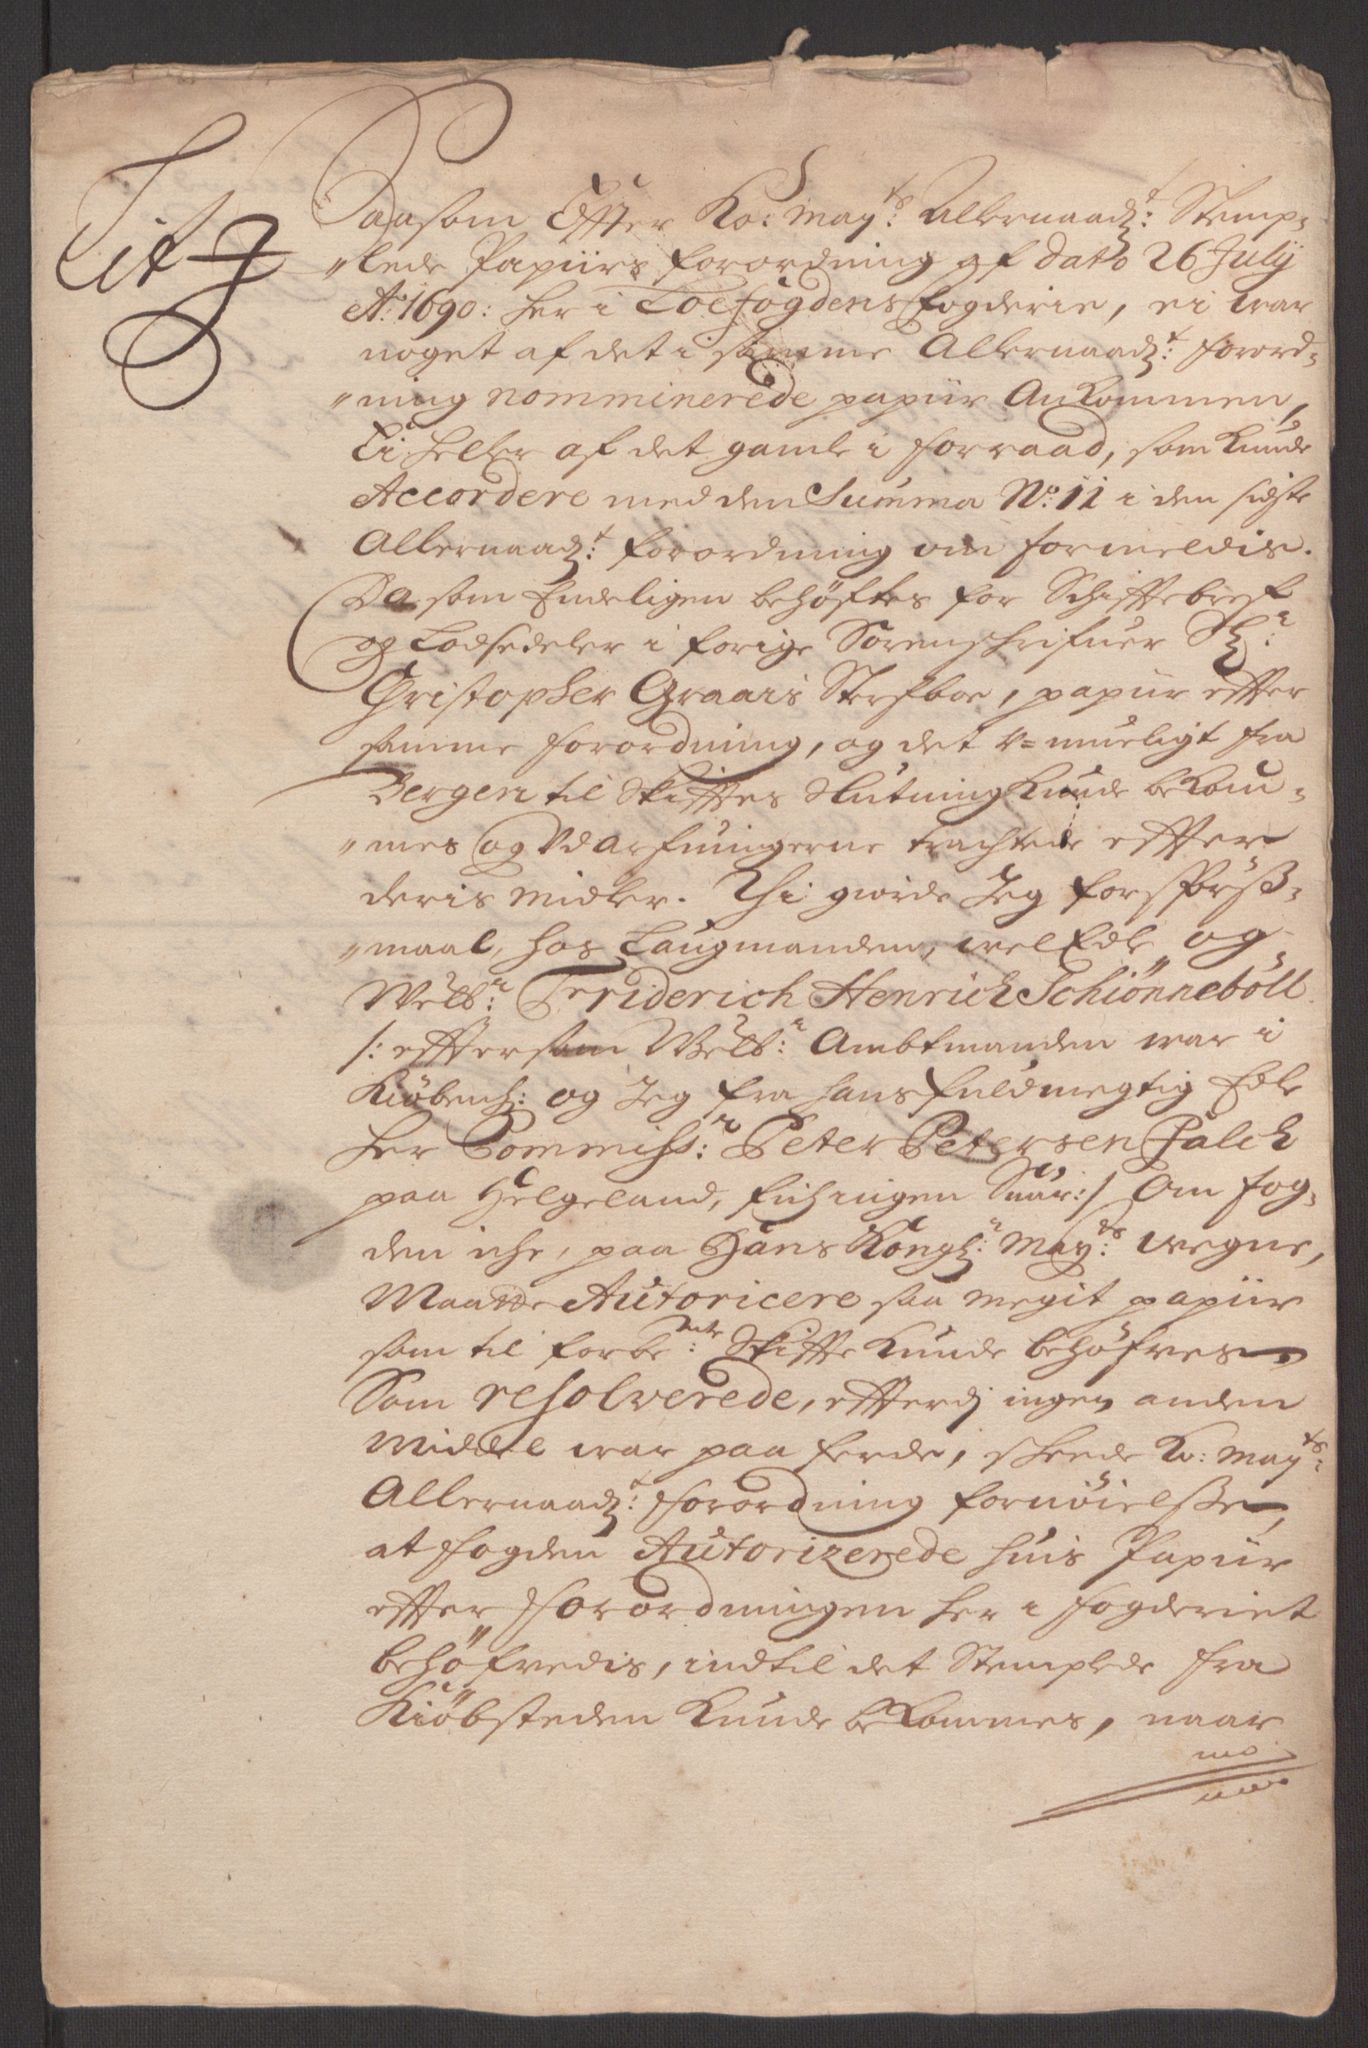 Lit J
Saasom Effter Ko: May:ts Allernaad:t Stemp-
"lede Papiirs forordning af dato 26 July
Ao 1690: her i Lofogdens fogderie, ei war
noget af det i samme Allernaad:t forord-
"ning nomminerede papiir Ankommen,
Ei heller af det gamle i forraad, som kunde
Accordere med den Summa No: 11 i den sidste
Allernaad:t forordning om formeldis.
Da som Endeligen behøftes for Schiftebref
og Lodsedeler i forige Sorenschrifuer Sl:r
Christopher Graais Sterfboe, papiir effter
samme forordning, og det v=mueligt fra
Bergen til Skifftes Slutning kunde bekom-
"mes og Vdarfuingerne trachtede effter
deris midler. Thi giorde Jeg forspørß-
"maal, hos Laugmanden, wel Edle og
Welb:r Friderich Henrich Schiønnebøll
/: efftersom Welb:r Ambtmanden war i
Kiøbenh: og Jeg fra hans fuldmegtig Edle
Her Commiss:r Peter Petersen Falch
paa Helgeland, fich ingen Suar :/ Om fog-
den iche, paa Hans Kongl:r May:ts wegne,
Maatte Autoricere saa megit papiir
som til forbe:mte Skiffte kunde behøfves,
Som resolverede, effterdj ingen anden
Middel war paa ferde, skeede Ko: May:ts
Allernaad:t forordning fornøielße,
at fogden Autorizerede huis Papiir
effter forordningen her i fogderiet
behøfvedis, indtil det Stemplede fra
Kiøbsteden kunde bekommes, naar